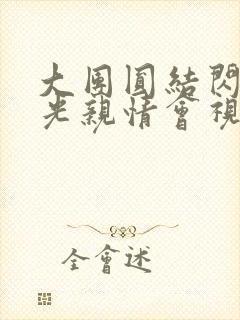 大團圓結閃
光親情會視
全會述